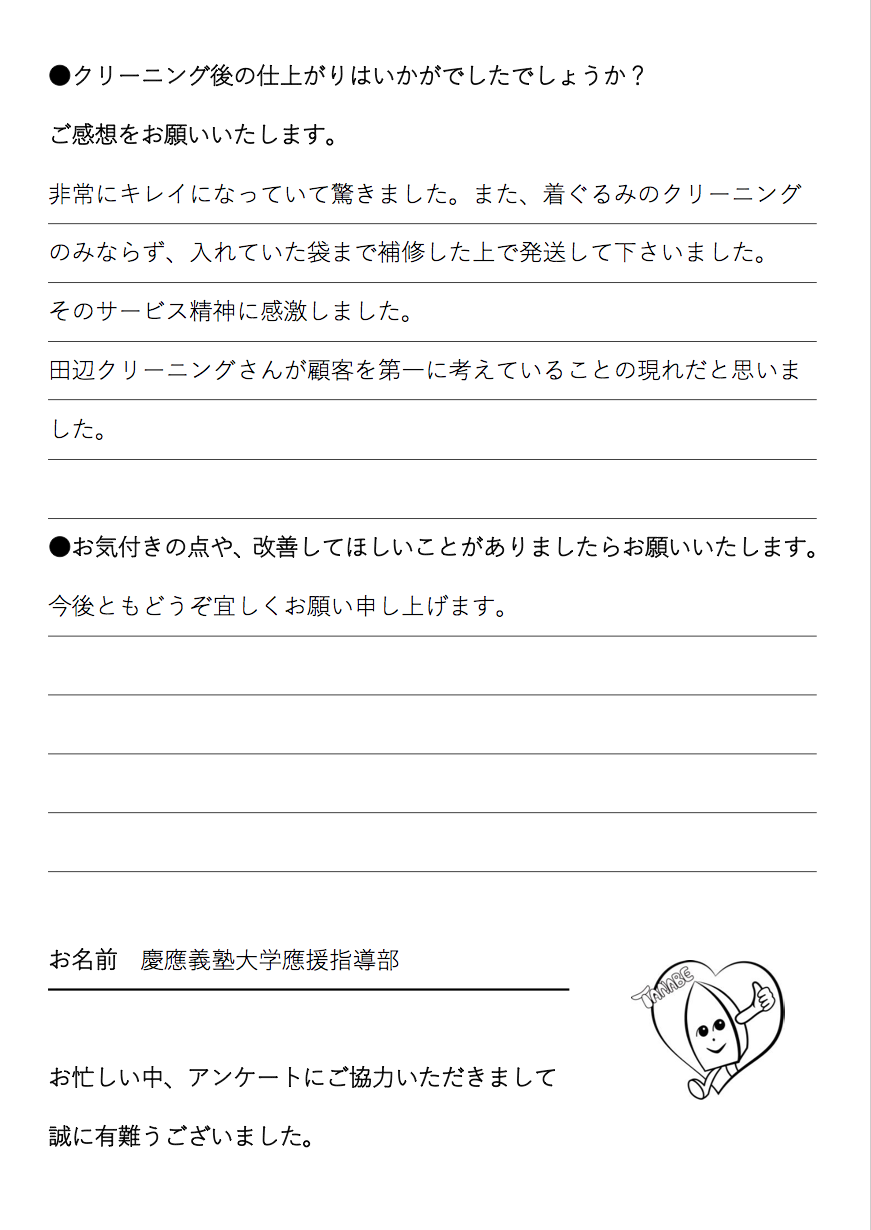 ●クリーニング後の仕上がりはいかがでしたでしょうか？
ご感想をお願いいたします。
非常にキレイになっていて驚きました。また、着ぐるみのクリーニング
のみならず、入れていた袋まで補修した上で発送して下さいました。
そのサービス精神に感激しました。
田辺クリーニングさんが顧客を第一に考えていることの現れだと思いま
した。
●お気付きの点や、改善してほしいことがありましたらお願いいたします。
今後ともどうぞ宜しくお願い申し上げます。
お名前　慶應義塾大学應援指導部
TANABE
お忙しい中、アンケートにご協力いただきまして
誠に有難うございました。